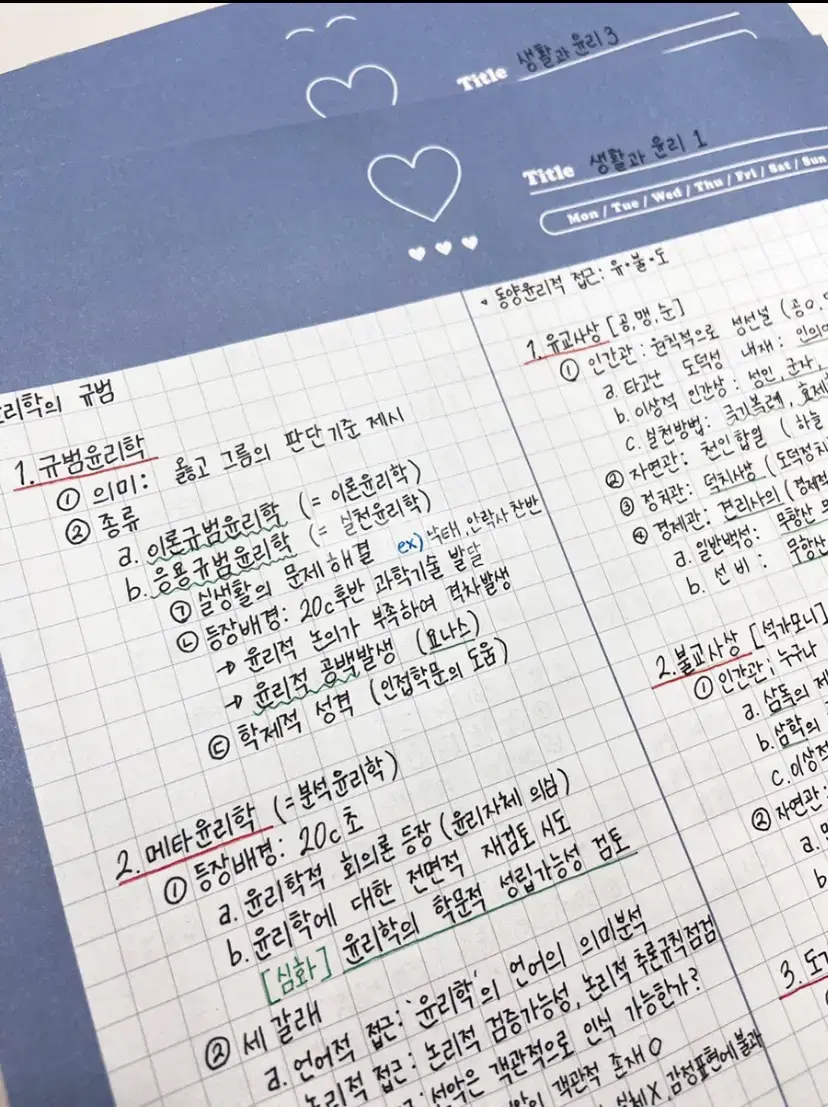 Title 생활과 윤리 3
Title 생활과 윤리 1
Mon / Tue / Wed / Thu / Fri / Sat / Sun
리학의 규범
1. 규범윤리학
① 의미: 옳고 그름의 판단기준 제시
② 종류
a. 이론규범윤리학 (= 이론윤리학)
b. 응용규범윤리학 (= 실천윤리학)
㉠ 실생활의 문제 해결 ex) 낙태, 안락사 찬반
㉡ 등장배경: 20c후반 과학기술 발달
→ 윤리적 논의가 부족하여 격차발생
→ 윤리적 공백발생 (요나스)
㉢ 학제적 성격 (인접학문의 도움)
2. 메타윤리학 (=분석윤리학)
① 등장배경: 20c초
a. 윤리학적 회의론 등장 (윤리자체 의심)
b. 윤리학에 대한 전면적 재검토 시도
[심화] 윤리학의 학문적 성립가능성 검토
② 세 갈래
a. 언어적 접근: '윤리학'의 언어의 의미분석
논리적 접근: 논리적 검증가능성, 논리적 추론규칙점검
: 선악은 객관적으로 인식 가능한가?
객관적 존재 O
실체X, 감정표현에 불과
• 동양윤리적 접근: 유·불·도
1. 유교사상 [공, 맹, 순]
① 인간관: 원칙적으로 성선설 (공O,
a. 타고난 도덕성 내재: 인의
b. 이상적 인간상: 성인, 군자,
c. 실천방법: 극기복례, 효제
② 자연관: 천인합일 (하늘
③ 정치관: 덕치사상 (도덕정치
④ 경제관: 견리사의 (경제적
a. 일반백성: 무항산 무
b. 선비: 무항산
2. 불교사상 [석가모니]
① 인간관: 누구나
a. 삼독의 제
b. 삼학의
c. 이상적
② 자연관:
a.
b
3. 도